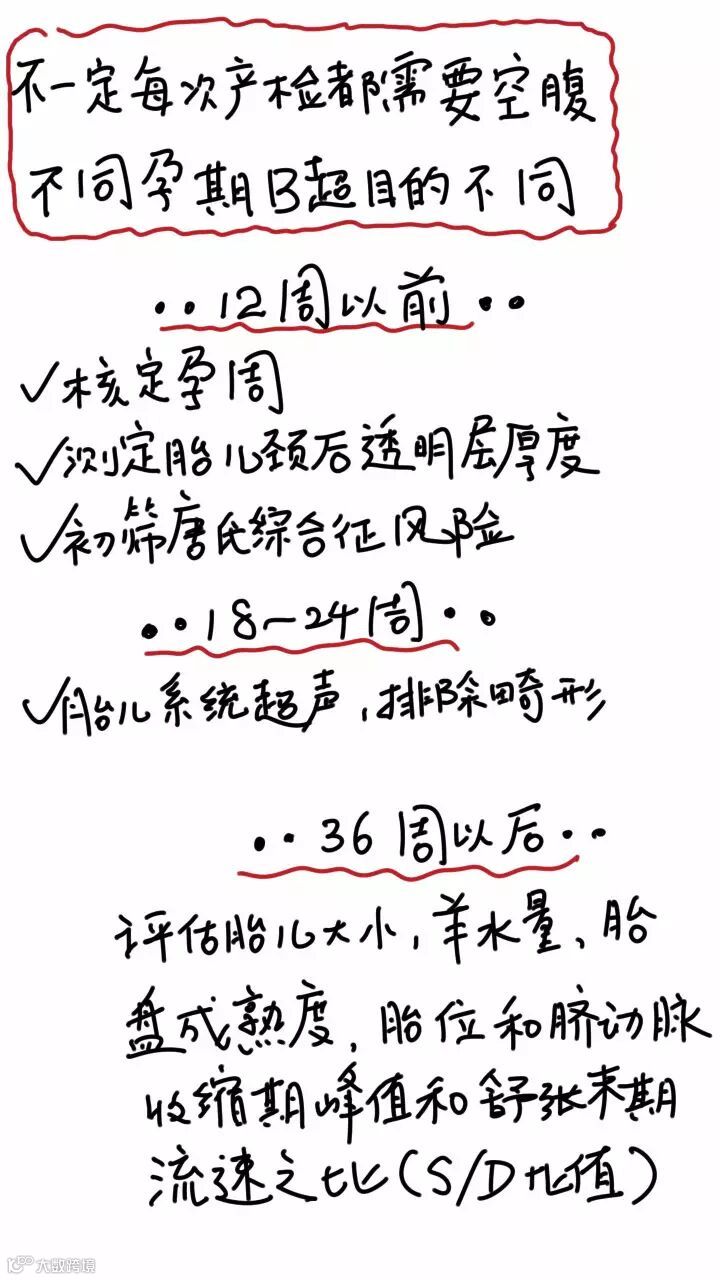 不一定每次产检都需要空腹
不同孕期B超目的不同
··12周以前··
✓核定孕周
✓测定胎儿颈后透明层厚度
✓初筛唐氏综合征风险
··18~24周··
✓胎儿系统超声,排除畸形
··36周以后··
评估胎儿大小,羊水量、胎
盘成熟度,胎位和脐动脉
收缩期峰值和舒张末期
流速之比(S/D比值)
大数跨境